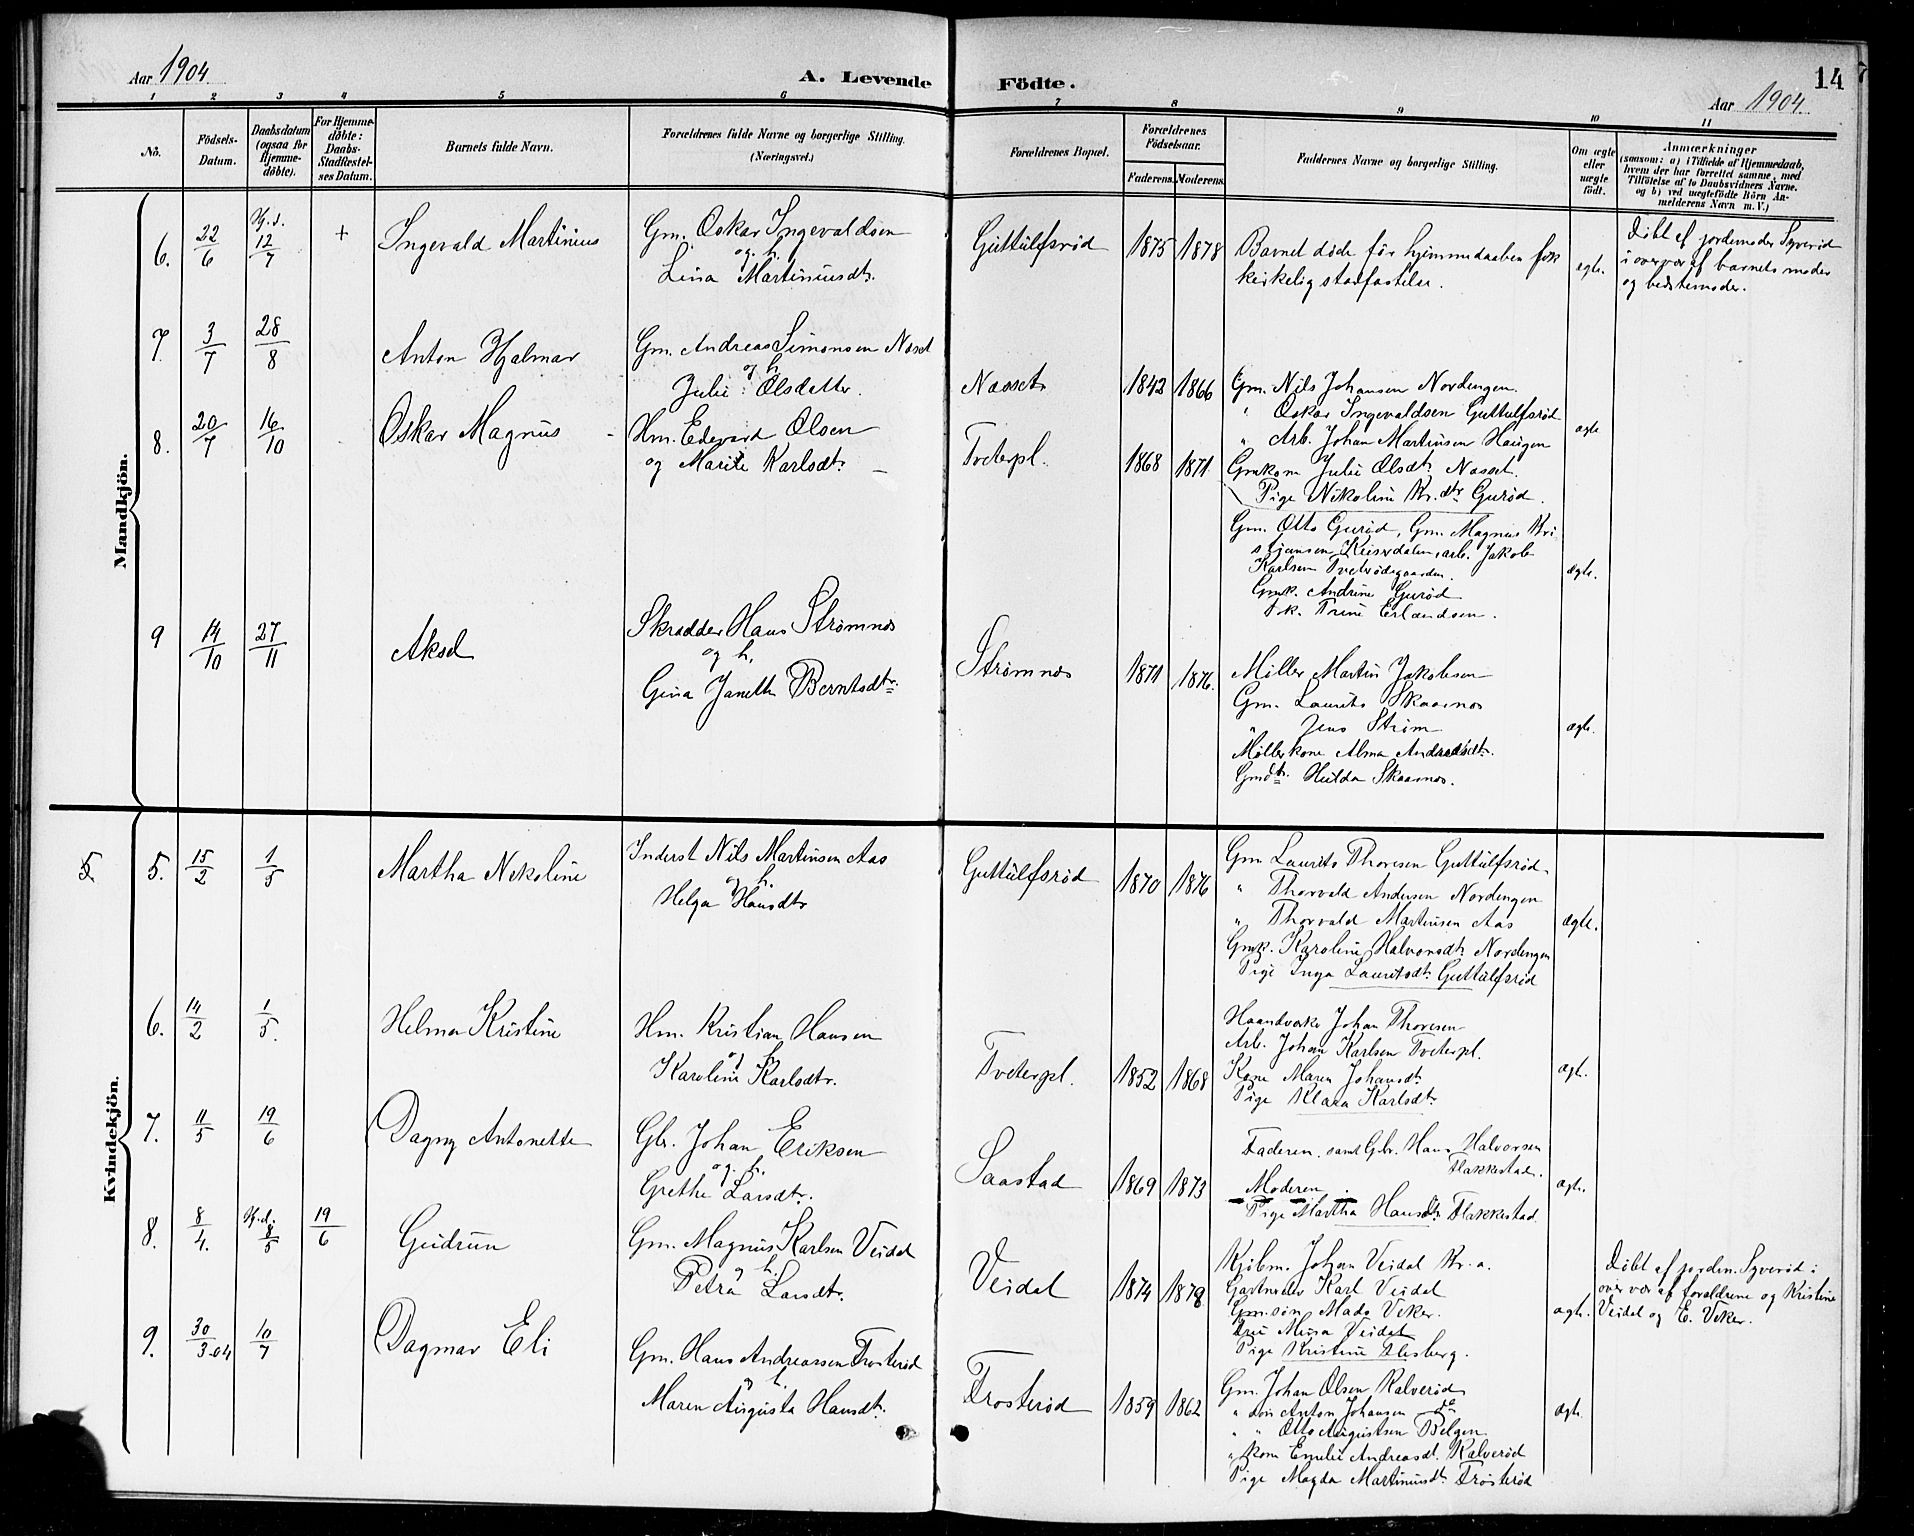 Aar 1904.
A. Levende Födte.
14
Aar 1904.
1 2 3 4 5 6 7 8 9 10 11
No.
Födsels-Datum.
Daabsdatum (ogsaa for Hjemmedøbte).
For Hjemmedøbte: Daabs-Stadfæstelses Datum.
Barnets fulde Navn.
Forældrenes fulde Navne og borgerlige Stilling.
(Næringsvei.)
Forældrenes Bopæl.
Forældrenes Födselsaar.
Faderens. Moderens.
Faddernes Navne og borgerlige Stilling.
Om ægte eller uægte födt.
Anmærkninger
(saasom: a) i Tilfælde af Hjemmedaab,
hvem der har forrettet samme, med
Tilföielse af to Daabsvidners Navne,
og b) ved uægtefödte Börn An-
melderens Navn m. V.)
Mandkjön.
6. 22/6 Hj.d. 12/7 + Ingevald Martinius
Gm. Oskar Ingevaldsen
og h.
Lina Martiniusdt.
Guttulfsrød 1875 1878
Barnet døde før hjemmedaaben fik
kirkelig stadfæstelse.
egte.
Døbt af jordemoder Syverød
i overvær af barnets moder
og bedstemoder.
7. 3/7 28/8 Anton Hjalmar
Gm. Andreas Simonsen Næset
og h.
Julie Olsdatter.
Næset 1842 1866
Gm. Nils Johansen Nordengen.
" Oskar Ingevaldsen Guttulfsrød
" Arb. Johan Martinsen Haugen
Gmkone Julie Olsdt. Næset.
Pige Nikoline Kr.dtr Gurød.
ægte
8. 20/7 16/10 Oskar Magnus
Hm. Edevard Olsen
og Marie Karlsdt.
Tveterpl. 1868 1871
Gm. Otto Gurød, Gm. Magnus Kri
stjansen Keiserdalen, arb. Jakob
Karlsen Tveterødegaarden.
Gmk. Andrine Gurød
Pk. Trine Erlandsen.
ægte.
9 14/10 27/11 Aksel
Skrædder Hans Strømnes
og h.
Gina Janette Berntsdtr.
Strømnes 1871 1876.
Møller Martin Jakobsen
Gm. Laurits Skaarnes
" Jens Strøm
Møllerkone Alma Andreasdt.
Gmdt. Hulda Skaarnes.
ægte.
Kvindekjön.
5. 5. 15/2 1/5 Martha Nikoline
Inderst Nils Martinsen Aas
og h.
Helga Hansdtr
Guttulfsrød 1870 1876
Gm Laurits Thoresen Guttulfsrød.
" Thorvald Andersen Nordengen
" Thorvald Martinsen Aas
Gmk. Karoline Halvorsdt. Nordengen
Pige Inga Lauritsdt. Guttulfsrød
ægte.
6. 14/2 1/5. Helma Kristine
Hm. Kristian Hansen
og h.
Karoline Karlsdtr.
Tveterpl. 1852 1868
Haandværke Johan Thoresen
Arb. Johan Karlsen Tveterpl.
Kone Maren Johansdt.
Pige Klara Karlsdt.
ægte.
7. 11/5 19/6 Dagny Antonette
Gbr. Johan Eriksen
og h.
Grethe Larsdtr.
Saastad 1869 1873
Faderen. samt Gbr. Hans Halvorsen
Flakkestad.
Moderen.
Pige Martha Hansdt. Flakkestad
ægte.
8. 8/4. Hj.d. 8/5 19/6 Gudrun
Gm. Magnus Karlsen Veidal
og h.
Petra Larsdtr.
Veidal 1874 1878
Kjøbm. Johan Veidal Kr.a.
Gaardmeder Karl Veidal
Gm.søn Mads Veker.
Frue Mina Veidal
Pige Kristine Elesberg.
ægte.
Døbt af jordem. Syverød i
overvær af forældrene og Kristine
Veidal og E. Veker.
9. 30/3.04 10/7 Dagmar Eli
Gm. Hans Andreassen Frosterød
og h.
Maren Augusta Hansdt.
Frosterød 1859 1862
Gm. Johan Olsen Kalverød
" søn Anton Johansen do
" " Otto Augustsen Belgen
" kone Emilie Andreasdt. Kalverød
Pige Magda Martinusdt. Frosterød
ægte.